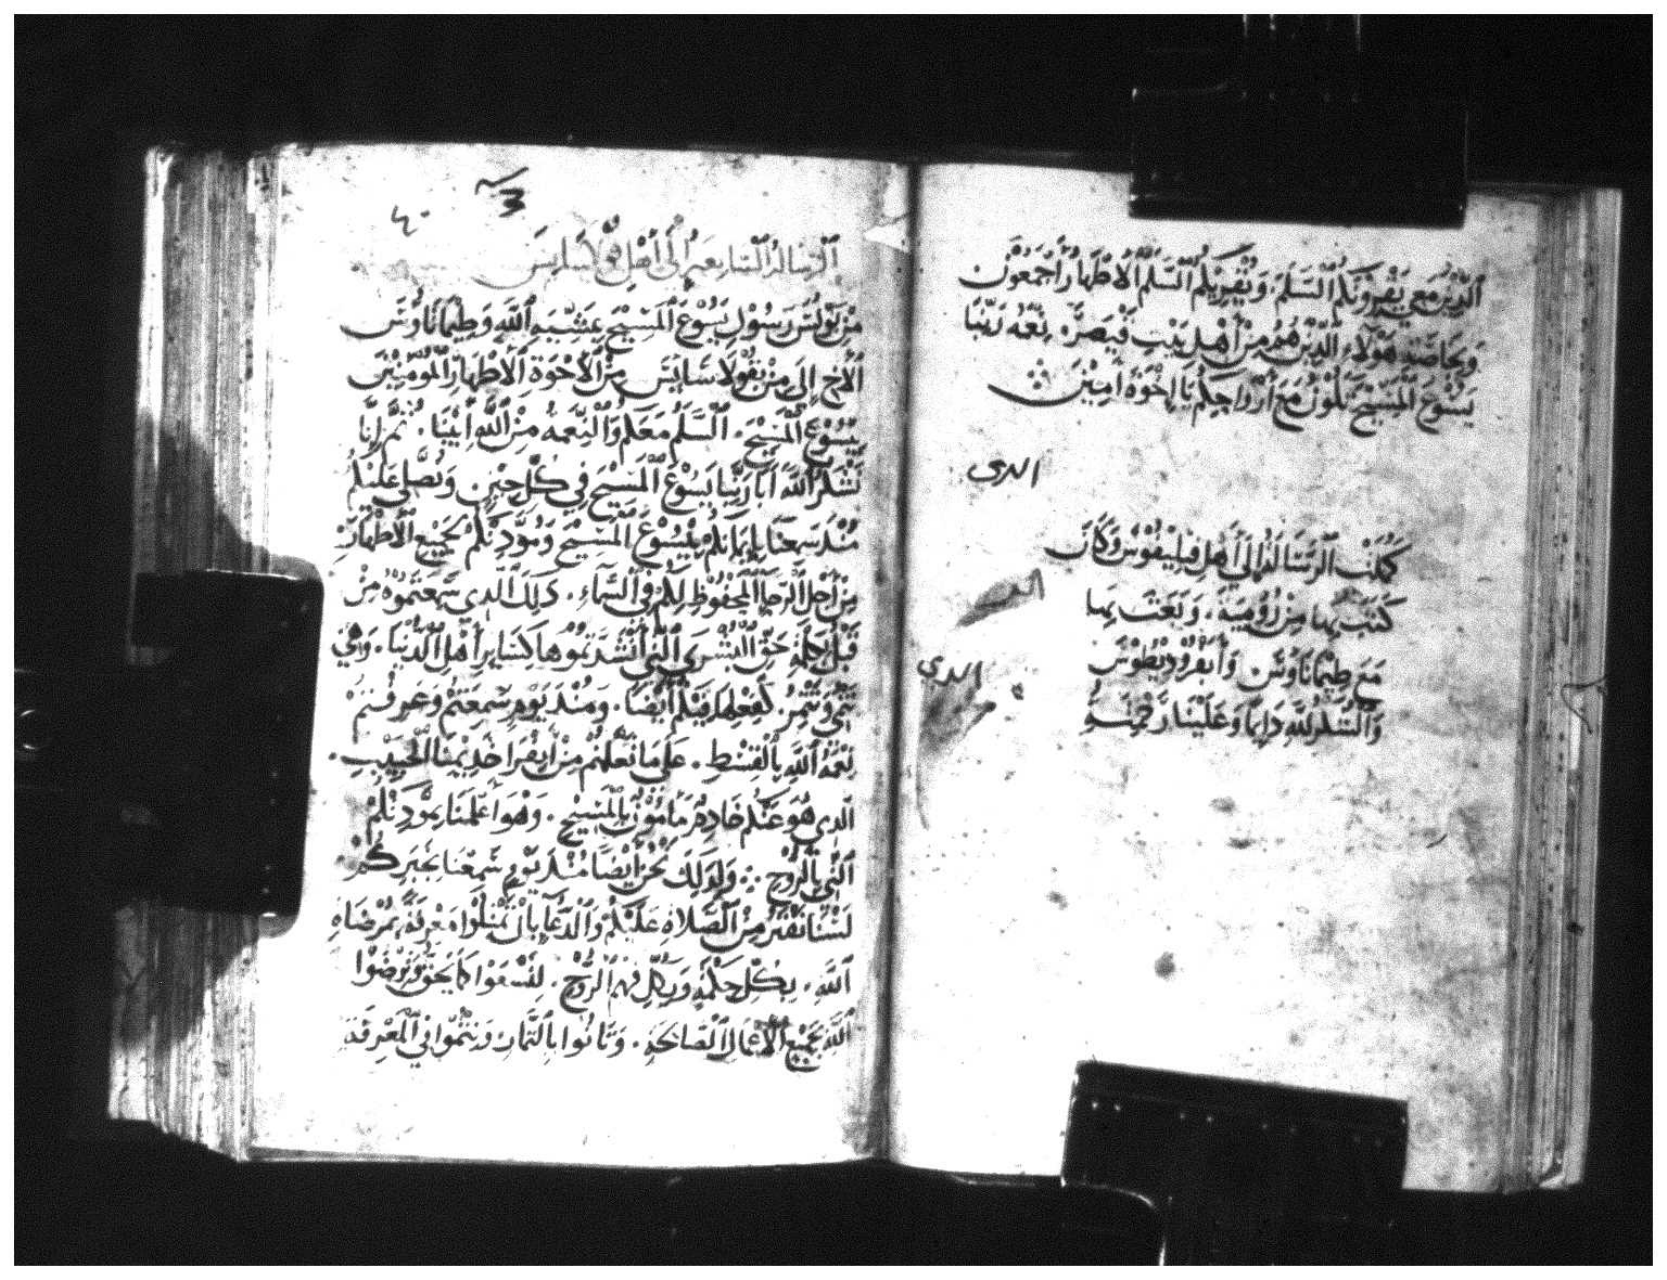 الَّذِينَ مَعِي يَقْرِونَكُم السَّلَمَ. وَيُقْرِيكُم السَّلَمَ الأطْهَارُ أَجْمَعُونَ
وَبِخَاصَّةٍ هَوْلَاءِ الَّذِينَ هُم مِنْ أَهْلِ بَيْتِ قَيْصَرَ. نِعْمَه رَبِّنَا
يَسُوعَ الْمَسِيْحِ تَكُونُ مَعَ أَرْوَاحِكُم يَا إِخْوَة أَمِيْنَ
الدى
كَمُلَتْ الرِّسَالَةُ إِلَى أَهْلِ فِيلِيفُوسَ وَكَانَ
كَتَبَ بِهَا مِنْ رُومِيَةَ. وَبَعَثَ بِهَا
مَعَ طِيمَاثَاوُسَ وَأَبَفْرُودِيْطُوسَ
وَالشُّكْرُ لِلَّهِ دَايِمًا وَعَلَيْنَا رَحْمَتُهُ
الدى
٤٠
الرِّسَالَةُ السَّابِعَةُ إِلَى أَهْلِ قُولَاسَايِسَ
مِنْ بَوْلُسَ رَسُوْلِ يَسُوْعَ الْمَسِيْحِ بِمَشِيَّةِ اللَّهِ وَطِيْمَاثَاوُسَ
الأَخِ إِلَى مَنْ بِقُولَاسَايِسَ مِنْ الأُخْوَة الأَطْهَارِ الْمُومِنِيْنَ
بِيَسُوْعَ الْمَسِيْحِ. السَّلَمُ مَعَكُم وَالنِّعْمَةُ مِنْ اللَّهِ أَبِيْنَا. ثُمَّ إِنَّا
نَشْكُرُ اللَّهَ أَبَا رَبِّنَا يَسُوْعَ الْمَسِيْحِ فِي كُلِّ حِيْنٍ. وَنُصَلِّي عَلَيْكُم
مُنْذُ سَمِعْنَا بِإِيْمَانِكُم بِيَسُوْعَ الْمَسِيْحِ وَمَوَدَّتِكُمْ لِجَمِيْعِ الأَطْهَارِ
مِنْ أَجْلِ الرَّجَا الْمَحْفُوْظِ لَكُمْ فِي السَّمَاءِ. ذَلِكَ الَّذِي سَمِعْتُمُوْهُ مِنْ
قَبْلُ بِكَلِمَةِ حَقِّ الْبُشْرَى الَّتِي أَنْشَدْتُمُوْهَا كَسَايِرِ أَهْلِ الدُّنْيَا. وَهِي
تَنْمِي وَتُثْمِرُ كَفِعْلِهَا فِيْكُمْ أَيْضًا. وَمُنْذُ يَوْمِ سَمِعْتُمْ وَعَرِفْتُمْ
نِعْمَةَ اللَّهِ بِالْقِسْطِ. عَلَى مَا تَعَلَّمْتُمْ مِنْ أَبَفْرَا خَدِيْمِنَا الْحَبِيْبِ.
الَّذِي هُوَ عَنْكُم خَادِمٌ مَأْمُوْنٌ بِالْمَسِيْحِ. وَهْوَ أَعْلَمَنَا بِمَوَدَّتِكُمْ
الَّتِي بِالرُّوْحِ وَلِذَلِكَ نَحْنُ أَيْضًا مُنْذُ يَوْمِ سَمِعْنَا بِخَبَرِكُمْ
لَسْنَا نَفْتُرُ مِنْ الصَّلَاةِ عَلَيْكُمْ وَالدُّعَا بِأَنْ تَمْتَلُوا مَعْرِفَةً بِمَرْضَاهِ
اللَّهِ. بِكُلِّ حِكْمَةٍ وَبِكُلِّ فَهْمِ الرُّوْحِ. لِتَسْعَوْا كَمَا يَحِقُّ وَتُرْضُوْا
اللَّهَ بِجَمِيْعِ الأَعْمَالِ الصَّالِحَةِ. وَتَاتُوا بِالثِّمَارِ وَتَنْمُوْا فِي الْمَعْرِفَة